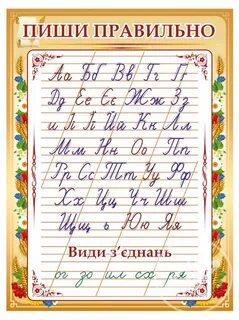 ПИШИ ПРАВИЛЬНО
Аа Бб Вв Гг Ґґ
Дд Ее Єє Жж Зз
Ии Іі Її Йй Кк Лл
Мм Нн Оо Пп
Рр Сс Тт Уу Фф
Хх Цц Чч Шш
Щщ ь Юю Яя
Види з'єднань
ог зо ил сх ря